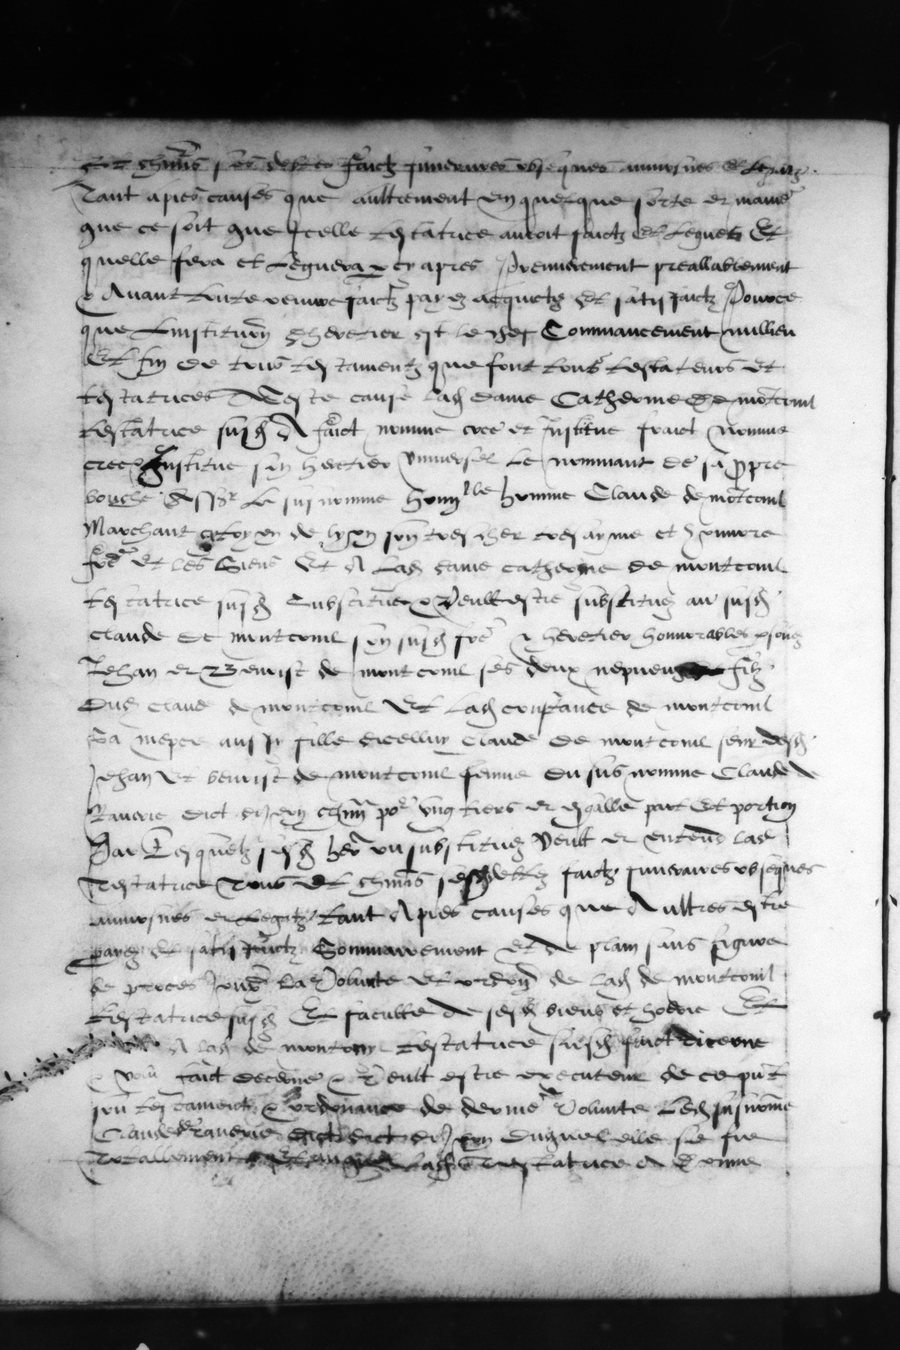 tous chūns ses debtes faictz funeraires obseques aumosnes et legatz
Tant apies causes que aultrement en quelque sorte et maniē
que ce soit que Icelle testatrice auroit faictz et leguez Et
quelle fera et leguera cy apres Premierement preallablement
& Auant toute oeuure faictz payez acquictz et satisfaictz Pource
que linstitution dheretier est le chef Commancement millieu
Et fin de tous testamentz que font tous testateurs et
testatrices A ceste cause lad dame Catherine de montconil
testatrice susd A faict nomme cree et Institue faict nomme
cree & Institue son heretier vniuersel le nommant de sa propre
bouche le susnomme honnble homme Claude de montconil
Marchant citoyen de lyon son treschier tresayme et honnore
frē et les siens Et A lad dame catherine de montconil
testatrice susd substitue & veult estre substituez au susd
Claude de montconil son susd frē & heretier honnorables psones
Jehan et Benoist de montconil ses deux nepueuz filz
Dud Claude de montconil Et lad constance de montconil
sa niepce aussy fille dicelluy Claude de montconil seur desd
Jehan et benoist de montconil femme du susnomme Claude de
Rauerie dict dijon chūn por vng tiers et esgalle part et portion
Par lesquelz susd herēs substituez veult et entend lad
Testatrice tous et chūns sesd debtez faictz funeraires obseques
aumosnes et legatz tant Apies causes que Aultres estre
payez et satisfaictz Sommairement et de plain sans figure
de proces Jouxte la volunte et ordonn de lad de montconil
testatrice susd Et faculte de sesd biens et hoirie Et
A lad de montconil testatrice susd faict decerne
& faict decerne & veult estre executeur de ce pnt
son testament & ordonnance de derniē volunte led susnomē
Claude de Rauerie dict dijon duquel elle se fie
Totallement lad testatrice A donne